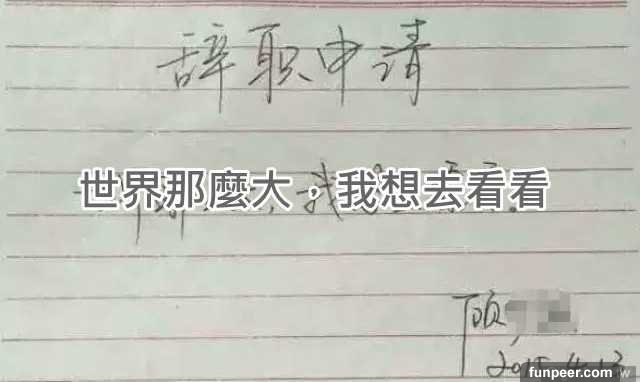 辞职申请
世界那麼大,我想去看看
顾
2015.4.13
funpeer.com